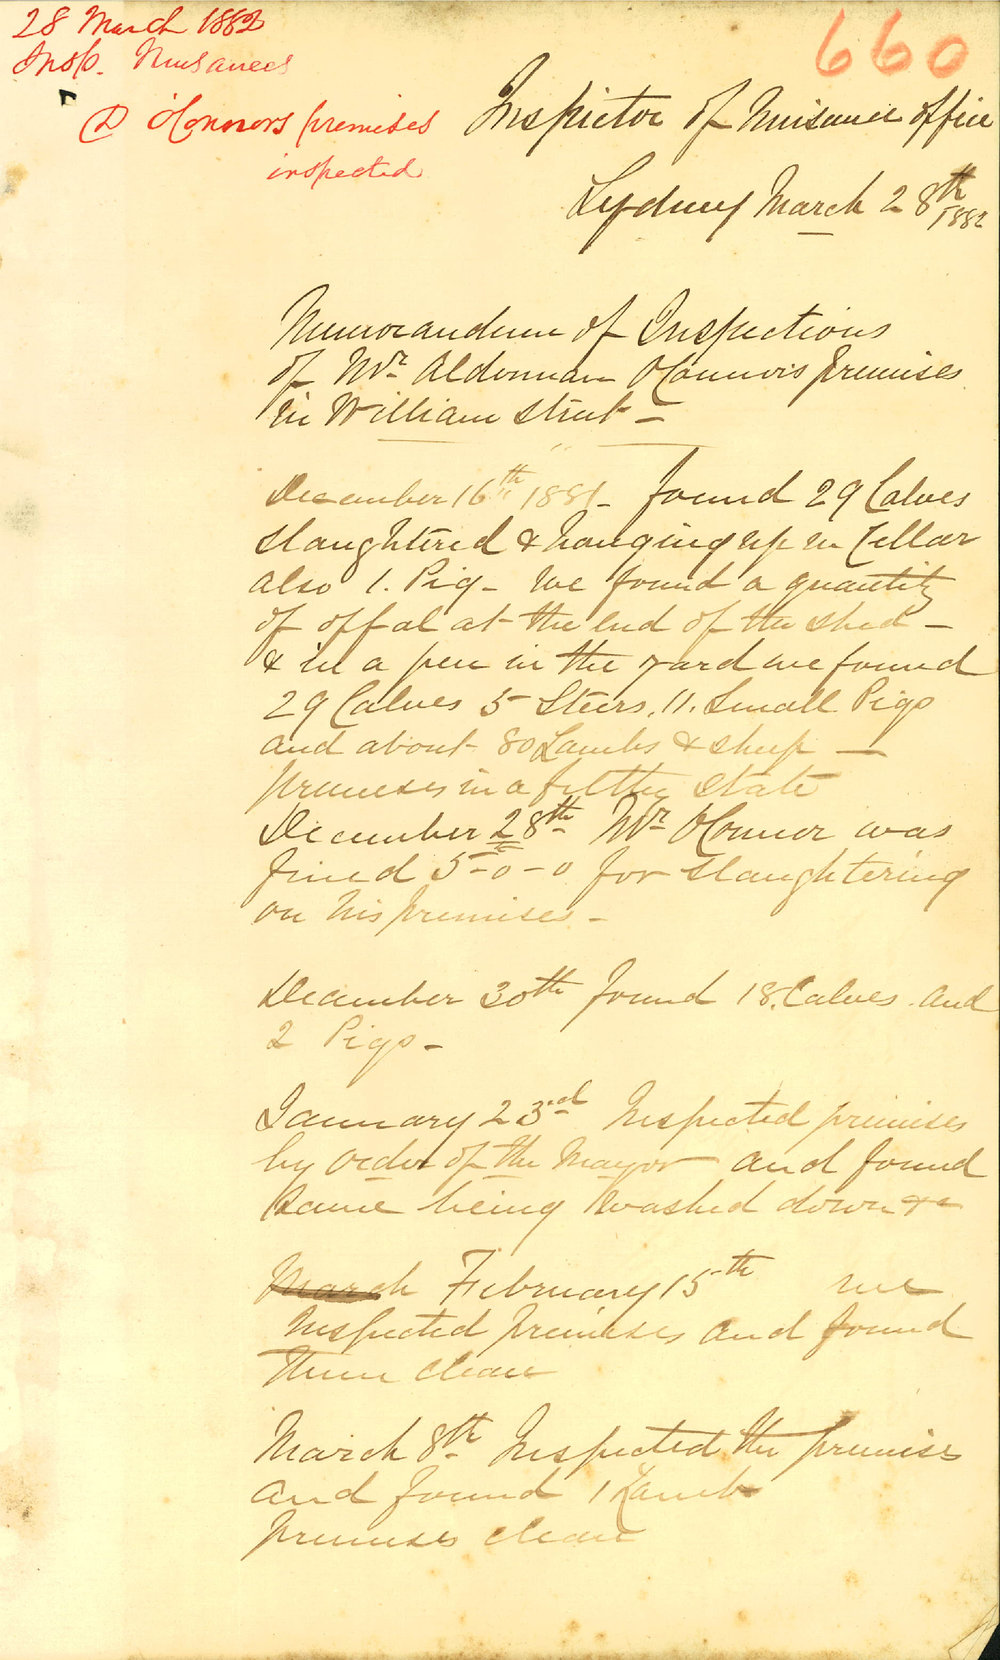 28 March 1882
Insp. Nusances
D O'Connors premises
inspected
660
Inspector of Nuisance office
Sydney March 28th 1882
Memorandum of Inspections
of Mr. Alderman O'Connors premises
in William Street -
December 16th 1881 - found 29 Calves
slaughtered & hanging up in Cellar
also 1. Pig - We found a quantity
of offal at the end of the shed -
& in a pen in the yard we found
29 Calves 5 Steers, 11. Small Pigs
and about 80 Lambs & sheep —
premises in a filthy state
December 28th Mr. O'Connor was
fined 5-0-0 for slaughtering
on his premises -
December 30th found 18. Calves and
2 Pigs -
January 23rd Inspected premises
by order of the Mayor and found
same being washed down &c
March February 15th we
Inspected premises and found
them clean
March 8th Inspected the premises
and found 1 Lamb
premises clean